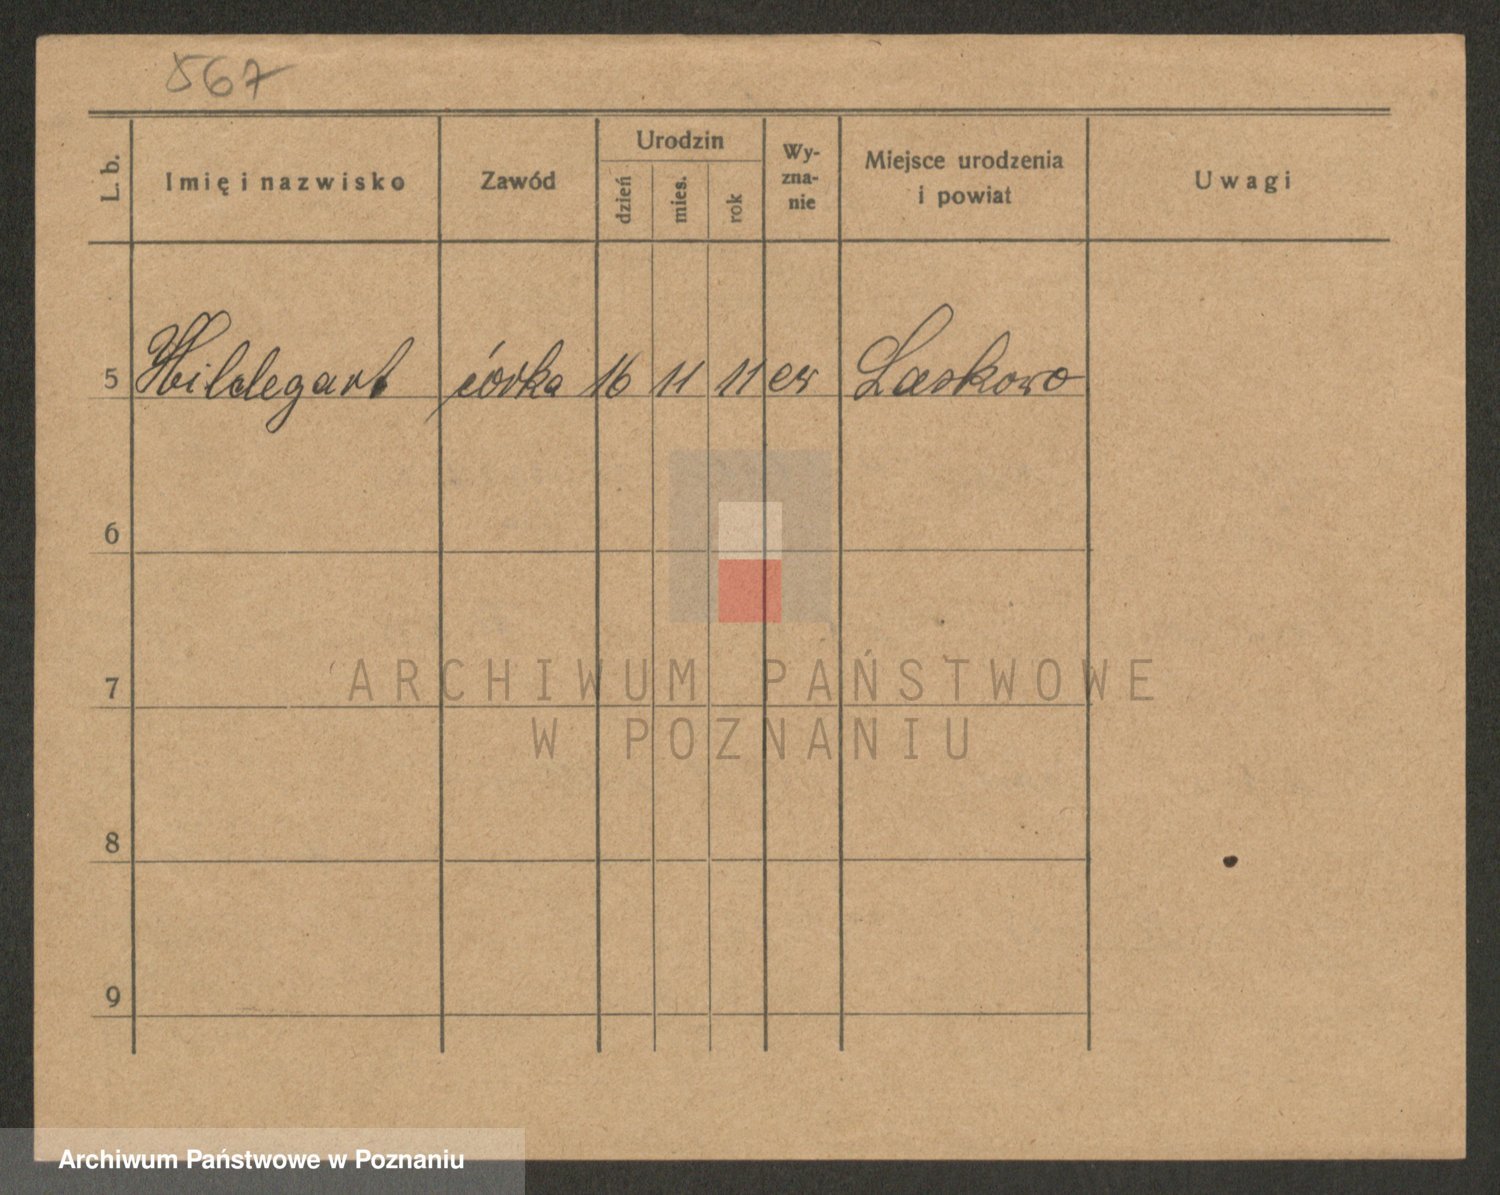 567
L. b. Imię i nazwisko Zawód Urodzin dzień mies. rok Wy-zna-nie Miejsce urodzenia i powiat Uwagi
5 Hildegart córka 16 11 11 ew Laskowo
6
7
ARCHIWUM PAŃSTWOWE
W POZNANIU
8
9
Archiwum Państwowe w Poznaniu